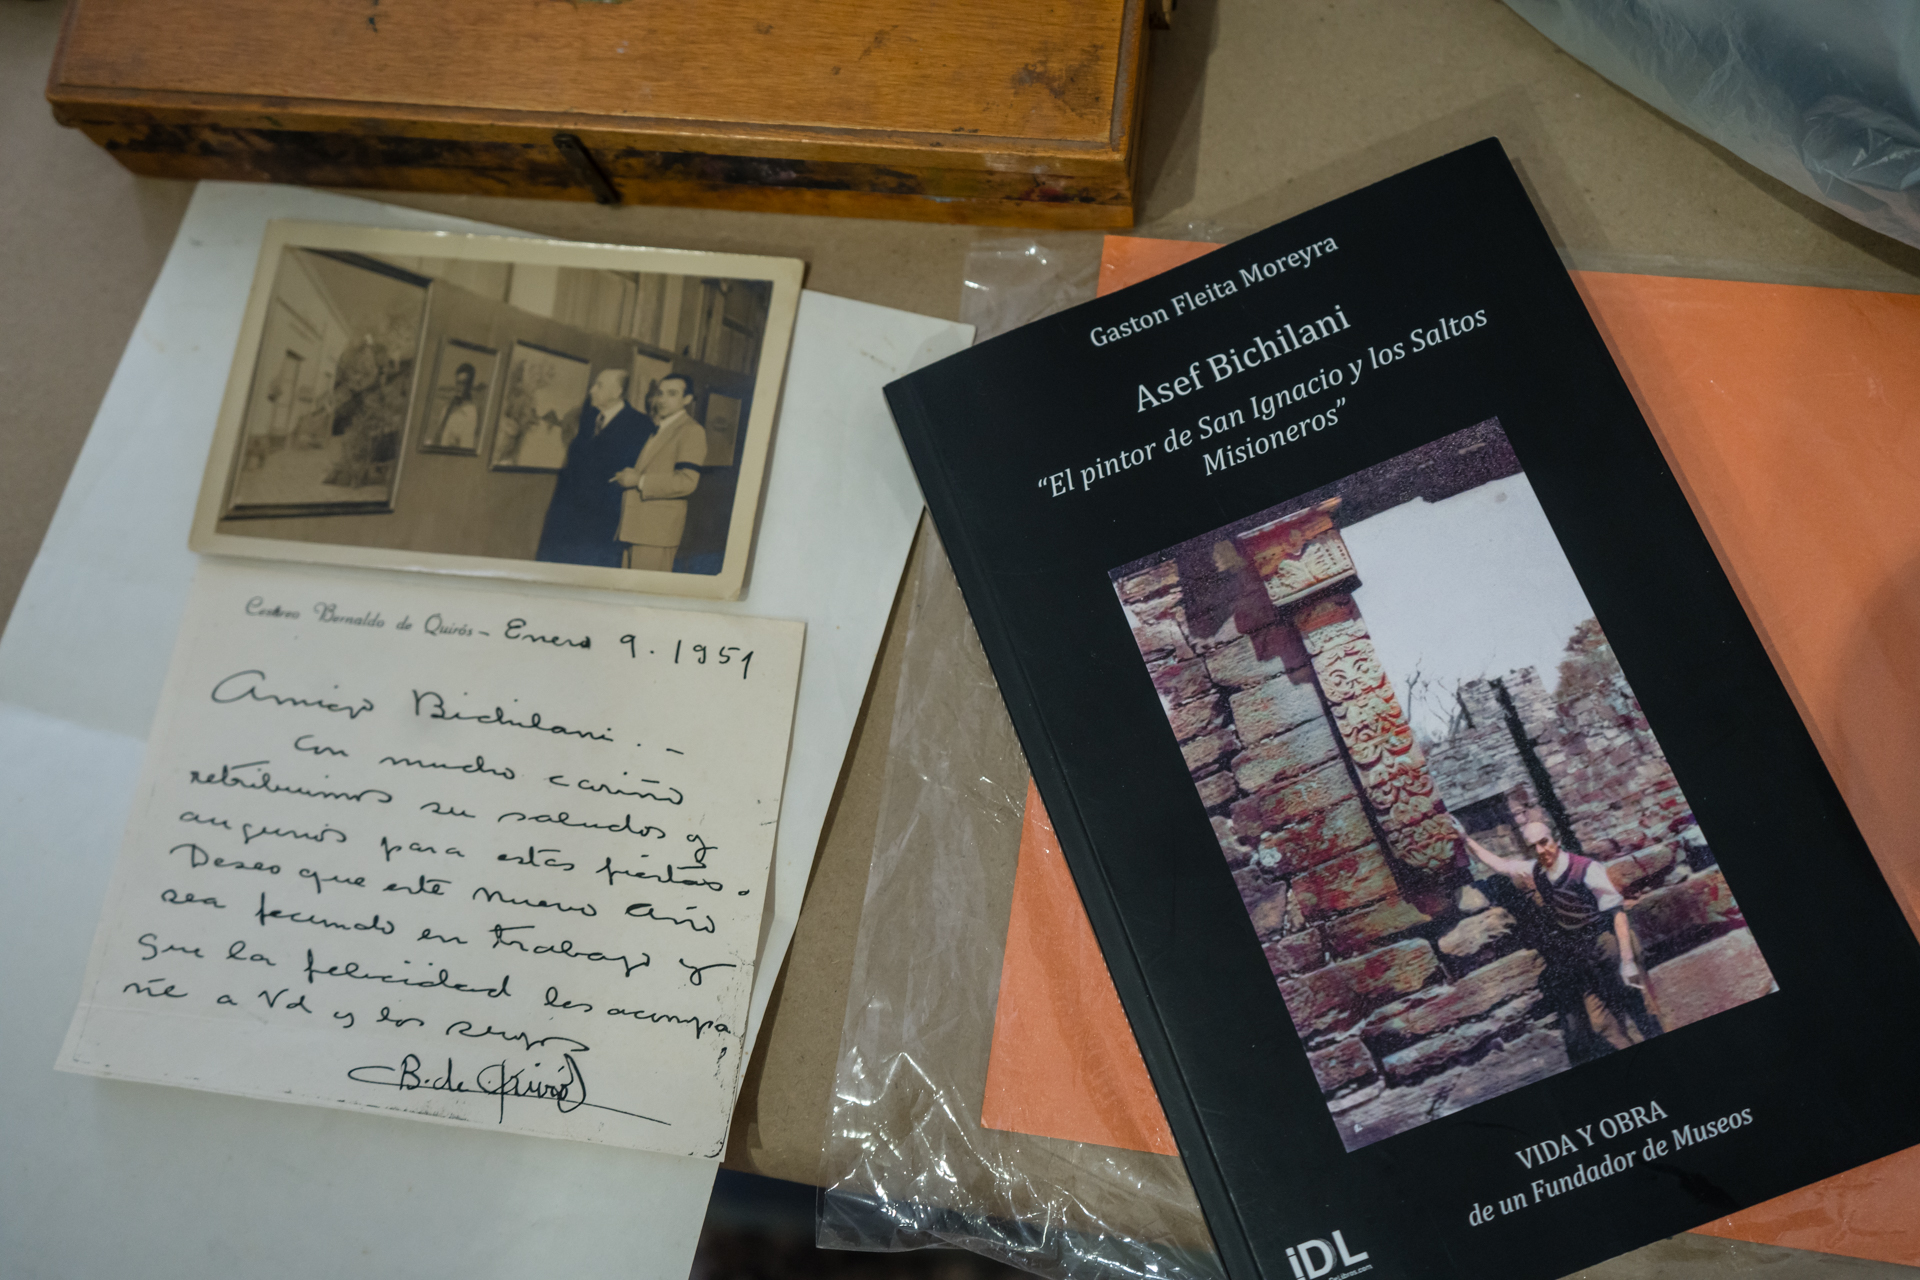 Cesáreo Bernaldo de Quirós - Enero 9. 1951
Amigo Bichilani. -
Con mucho cariño
retribuimos su saludos y
augurios para estas fiestas.
Deseo que este Nuevo Año
sea fecundo en trabajo y
que la felicidad les acompa
ñe a Vd y los suyos
B. de Quirós
Gaston Fleita Moreyra
Asef Bichilani
“El pintor de San Ignacio y los Saltos
Misioneros”
VIDA Y OBRA
de un Fundador de Museos
iDL